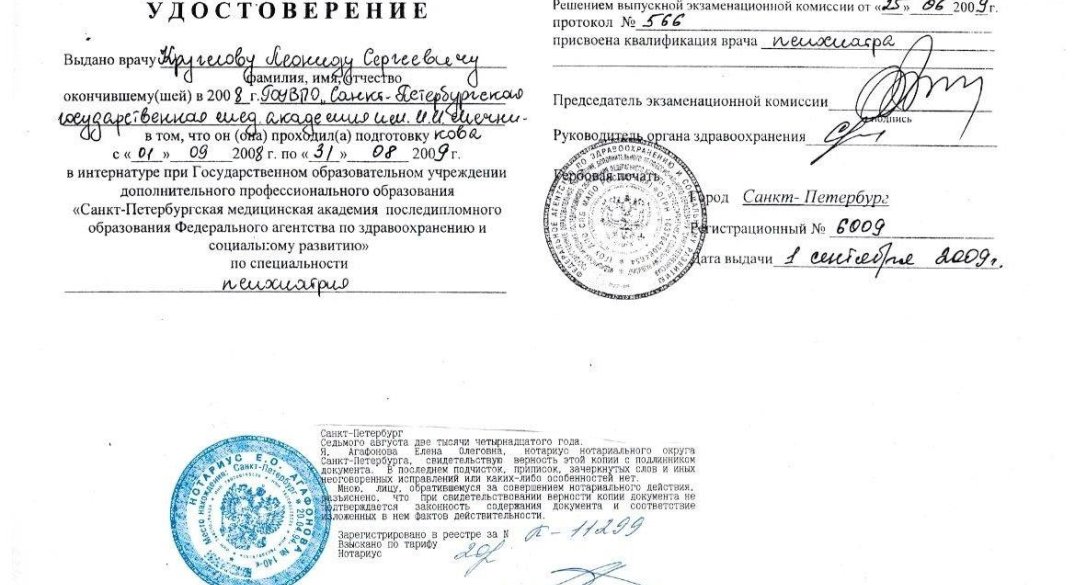 УДОСТОВЕРЕНИЕ
Выдано врачу Круглову Леониду Сергеевичу
фамилия, имя, отчество
окончившему(шей) в 2008 г. ГОУВПО „Санкт-Петербургская
государственная мед. академия им. И.И. Мечни-
в том, что он (она) проходил(а) подготовку кова
с «01» 09 2008 г. по «31» 08 2009 г.
в интернатуре при Государственном образовательном учреждении
дополнительного профессионального образования
«Санкт-Петербургская медицинская академия последипломного
образования Федерального агентства по здравоохранению и
социальному развитию»
по специальности
психиатрия
Решением выпускной экзаменационной комиссии от «25» 06 2009 г.
протокол № 566
присвоена квалификация врача психиатра
Председатель экзаменационной комиссии
подпись
Руководитель органа здравоохранения
Гербовая печать
Город Санкт-Петербург
Регистрационный № 6009
Дата выдачи 1 сентября 2009г.
Санкт-Петербург
Седьмого августа две тысячи четырнадцатого года.
Я, Агафонова Елена Олеговна, нотариус нотариального округа
Санкт-Петербурга, свидетельствую верность этой копии с подлинником
документа. В последнем подчисток, приписок, зачеркнутых слов и иных
неоговоренных исправлений или каких-либо особенностей нет.
Мною, лицу, обратившемуся за совершением нотариального действия,
разъяснено, что при свидетельствовании верности копии документа не
подтверждается законность содержания документа и соответствие
изложенных в нем фактов действительности.
Зарегистрировано в реестре за N П-11299
Взыскано по тарифу 20р.
Нотариус
НОТАРИУС Е.О. АГАФОНОВА
Место нахождения: Санкт-Петербург